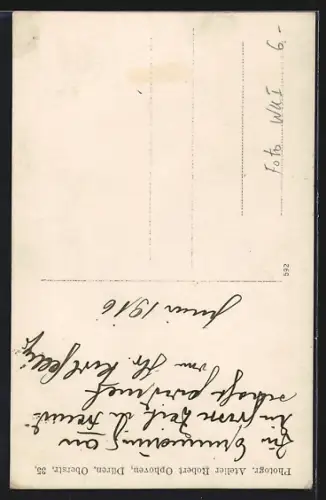 Foto WKI 6,-
592
Juni 1916
Zur Erinnerung an
Zeit d. Freund-
schaft gewidmet
von
Photogr. Atelier Robert Ophoven, Düren, Oberstr. 35.